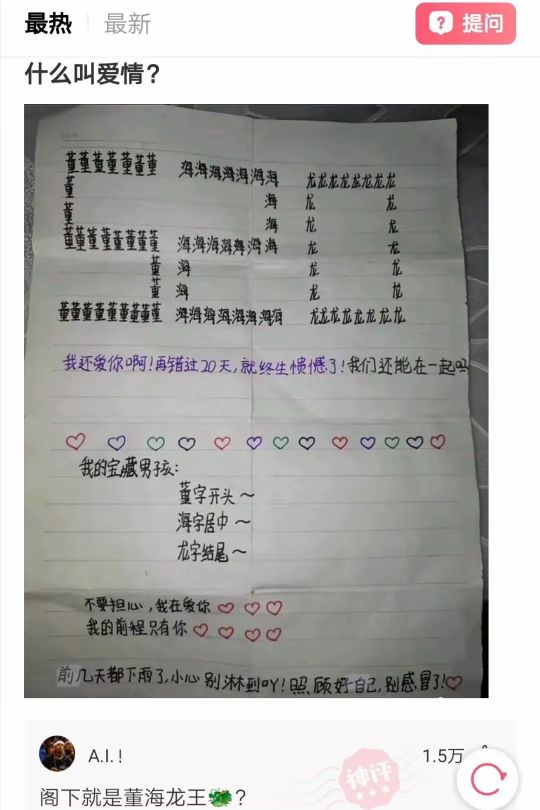 最热 最新 提问
什么叫爱情?
董董董董董董董 海海海海海海海 龙龙龙龙龙龙龙龙
董 海 龙 龙
董 海 龙 龙
董董董董董董董 海海海海海海海 龙 龙
董 海 龙 龙
董 海 龙 龙
董董董董董董董董 海海海海海海海海 龙龙龙龙龙龙龙龙
我还爱你啊!再错过20天,就终生愤憾了!我们还能在一起吗
我的宝藏男孩:
董字开头~
海字居中~
龙字结尾~
不要担心,我在爱你
我的前程只有你
前几天都下雨了,小心别淋到吖!照顾好自己,别感冒了!
A.I.! 1.5万
神评
阁下就是董海龙王🐲?